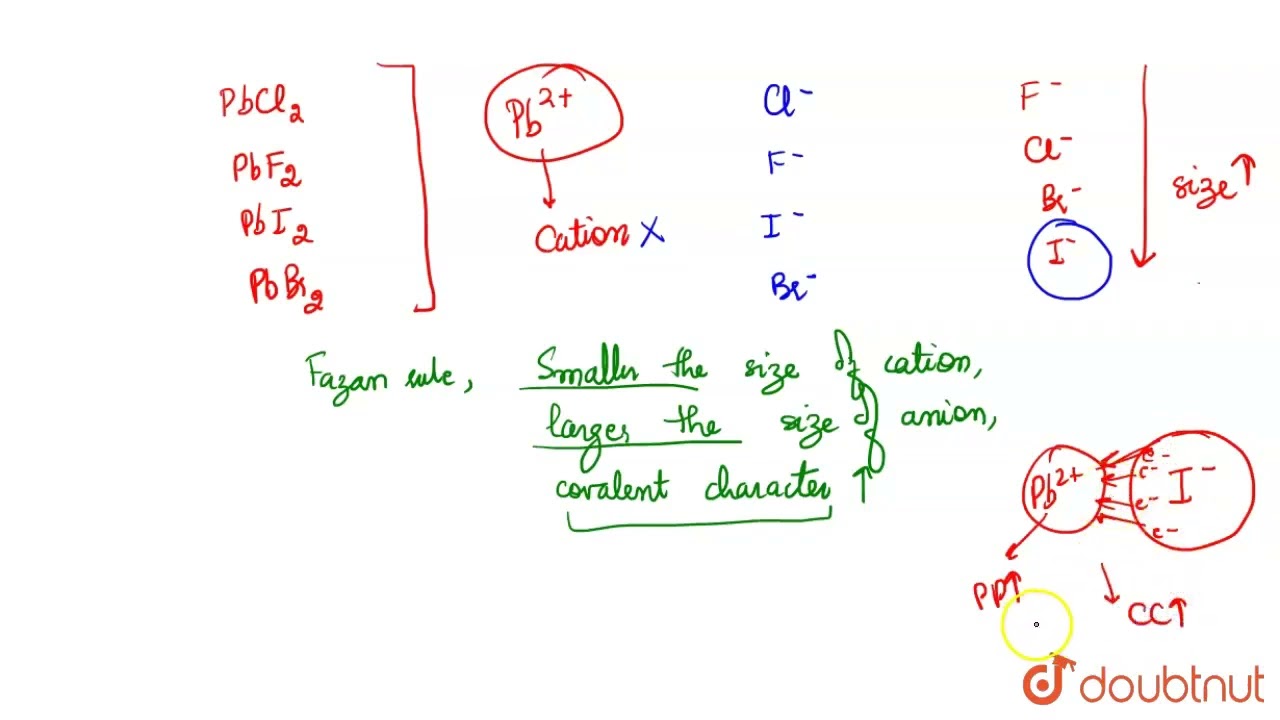 PbCl2
PbF2
PbI2
PbBr2
Pb2+
Cation X
Cl-
F-
I-
Br-
F-
Cl-
Br-
I-
size↑
Fazan rule, Smaller the size of cation,
larger the size of anion,
covalent character ↑
Pb2+
e-
e-
e-
e-
I-
PP↑
CC↑
doubtnut